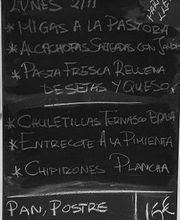 LUNES 21II
* MIGAS A LA PASTORA
* ALCACHOFAS SALTEADAS CON
* PASTA FRESCA RELLENA
DE SETAS Y QUESO
* CHULETILLAS TERNASCO BRASA
* ENTRECOTE A LA PIMIENTA
* CHIPIRONES PLANCHA
PAN, POSTRE
12€